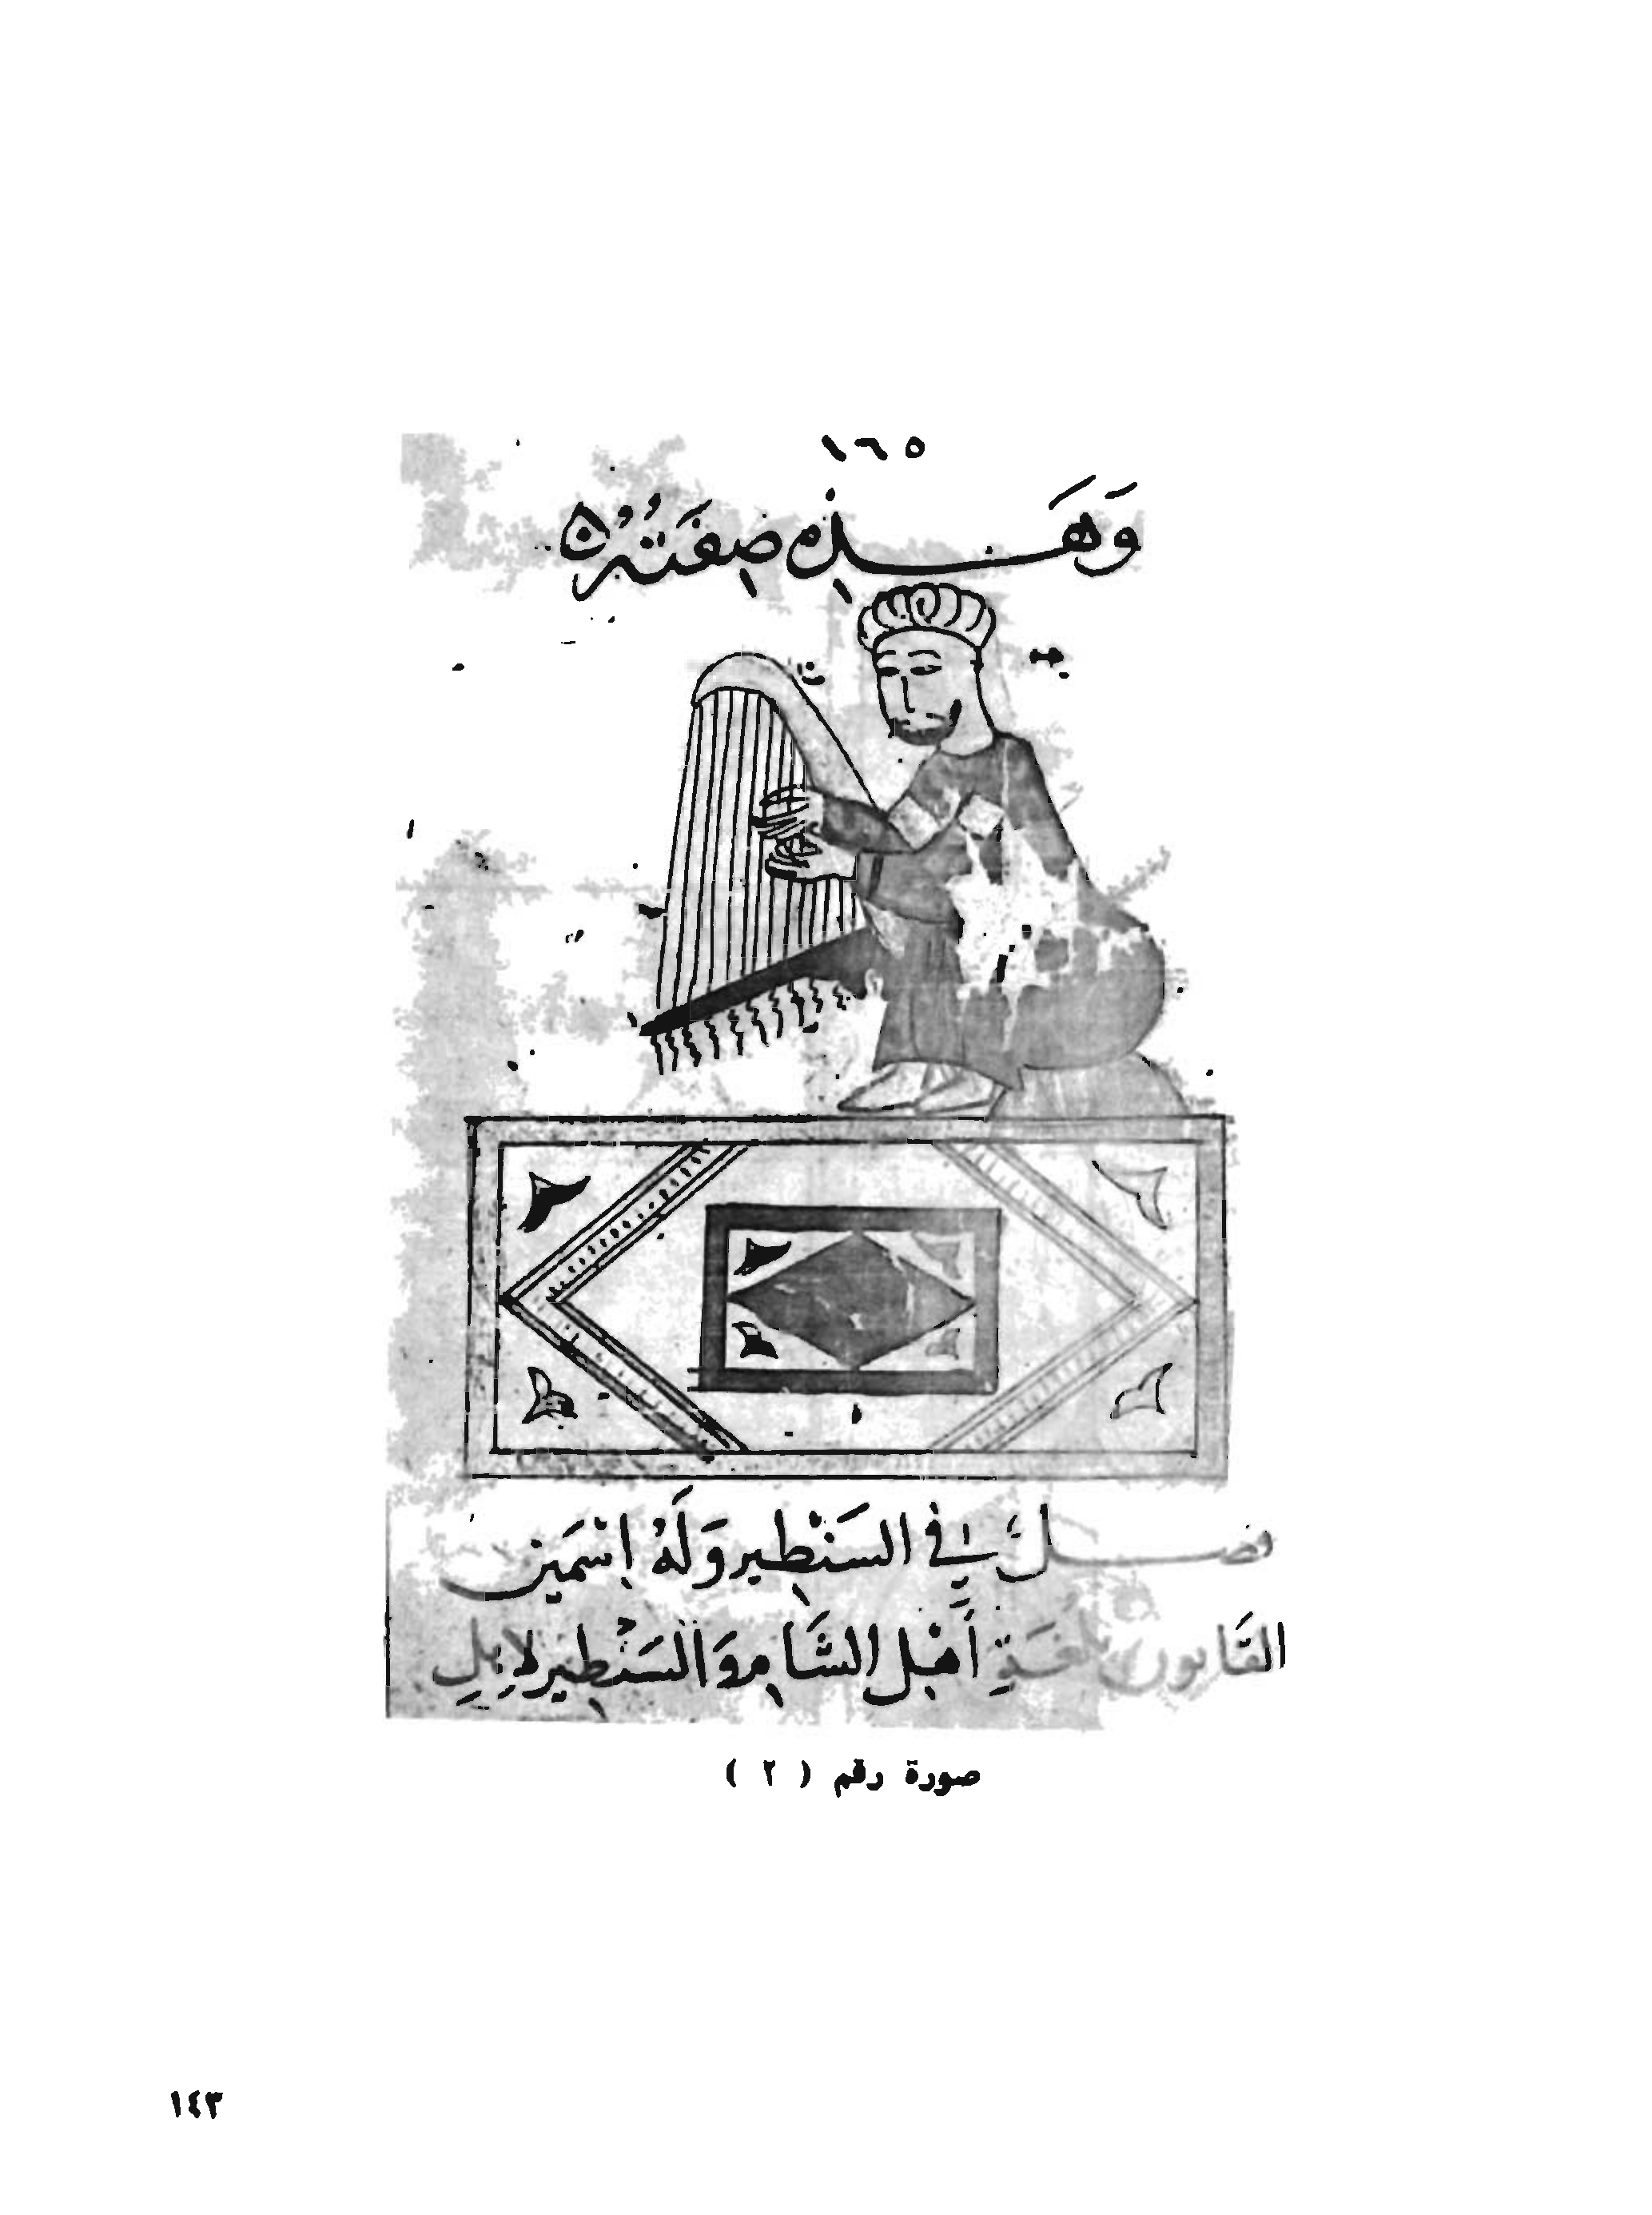 ١٦٥
وَهَـذِهِ صِفَتُهُ
فصل فِي السَنْطِير وَلَهُ اِسْمَين
القَانون بلغَةِ أَهْلِ الشَامِ وَالسَنْطِير لاِهلِ
صورة رقم ( ٢ )
١٤٣